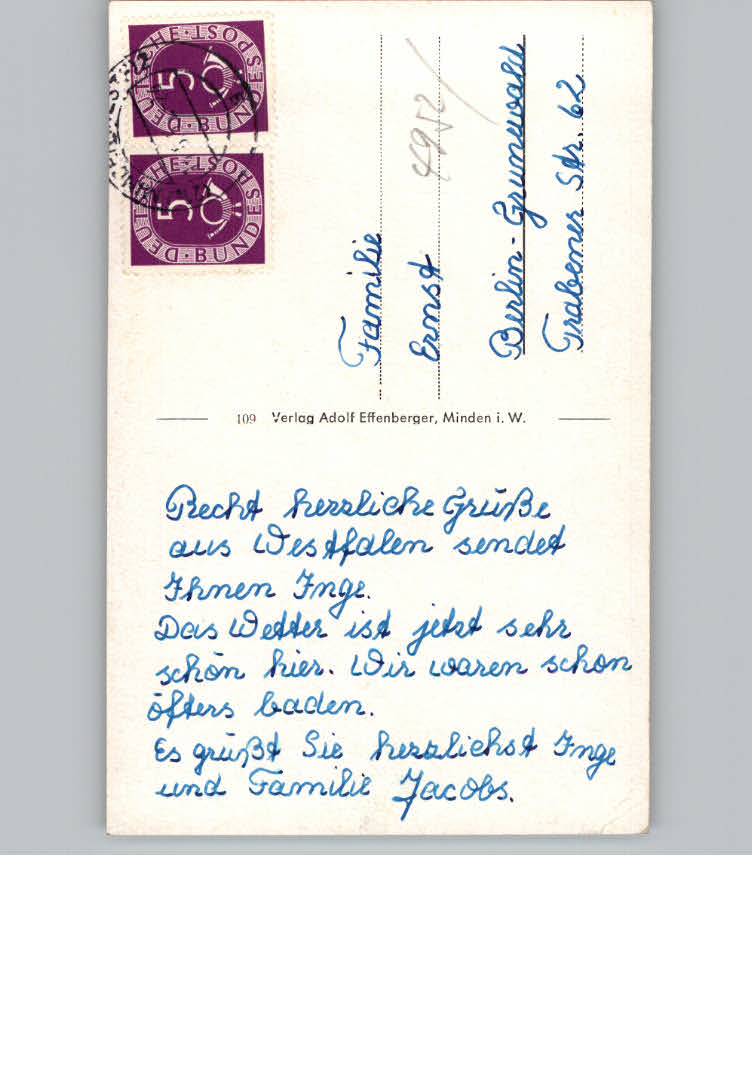 DEUTSCHE BUNDESPOST
5
DEUTSCHE BUNDESPOST
5
Familie
Ernst
1952
Berlin-Grunewald
Trabener Str. 62
109 Verlag Adolf Effenberger, Minden i. W.
Recht herzliche Grüße
aus Westfalen sendet
Ihnen Inge.
Das Wetter ist jetzt sehr
schön hier. Wir waren schon
öfters baden.
Es grüßt Sie herzlichst Inge
und Familie Jacobs.